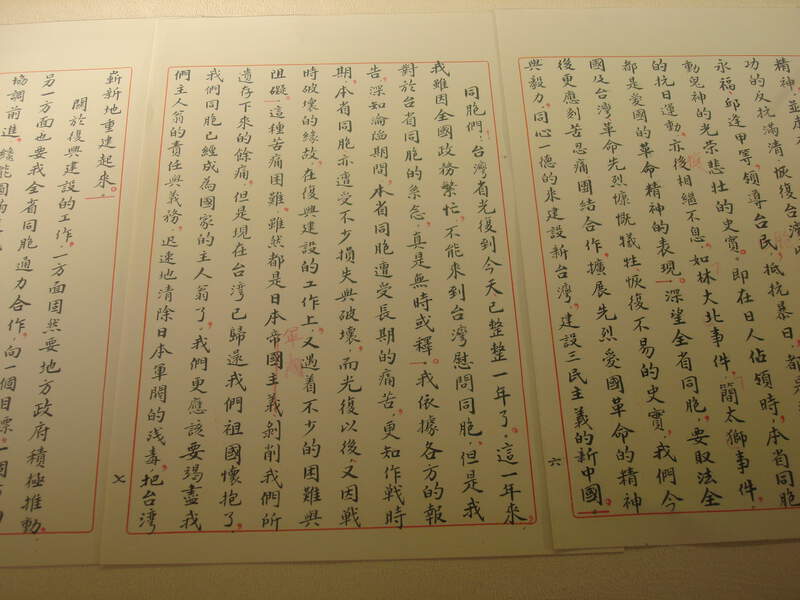 精神，並
功的反抗滿清恢復台灣
永福邱逢甲等，領導台民，抵抗暴日，都是
動鬼神的光榮悲壯的史實。即在日人佔領時，本省同胞
的抗日運動，亦復相繼不息，如林大北事件，簡太獅事件，
都是愛國的革命精神的表現。深望全省同胞，要取法全
國及台灣革命先烈慷慨犧牲，恢復不易的史實，我們今
後更應刻苦忍痛，團結合作，擴展先烈愛國革命的精神
與毅力，同心一德的來建設新台灣，建設三民主義的新中國。
六
同胞們：台灣省光復到今天已整整一年了，這一年來，
我雖因全國政務繁忙，不能來到台灣慰問同胞，但是我
對於台省同胞的系念，真是無時或釋。我依據各方的報
告，深知淪陷期間，本省同胞遭受長期的痛苦，更知作戰時
期，本省同胞亦遭受不少損失與破壞，而光復以後，又因戰
時破壞的緣故，在復興建設的工作上，又遇着不少的困難與
阻礙。這種苦痛困難，雖然都是日本帝國主義剝削我們所
軍閥
遺存下來的餘痛，但是現在台灣已歸還我們祖國懷抱了，
我們同胞已經成為國家的主人翁了，我們更應該要竭盡我
們主人翁的責任與義務，迅速地清除日本軍閥的殘毒，把台灣
七
嶄新地重建起來。
關於復興建設的工作，一方面固然要地方政府積極推動，
另一方面也要我全省同胞通力合作，向一個目標，一個
協調前進，纔能圓滿